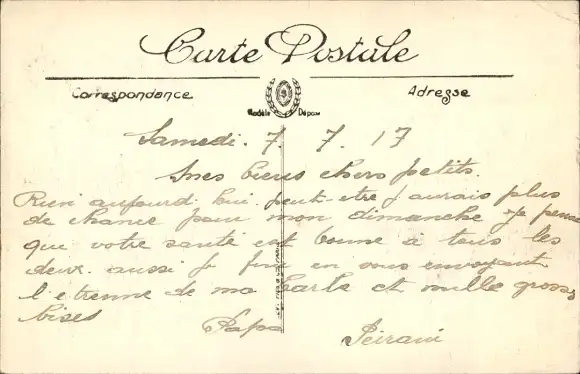 Carte Postale
Correspondance
Adresse
Modèle Déposé
Samedi. 7. 7. 17
Mes biens chers petits.
Rien aujourd hui peut-etre j aurais plus
de chance pour mon dimanche je pense
que votre santé est bonne à tous les
deux. aussi je fini en vous envoyant
l etrenne de ma Carte et mille grosses
bises
Papa
Peirani